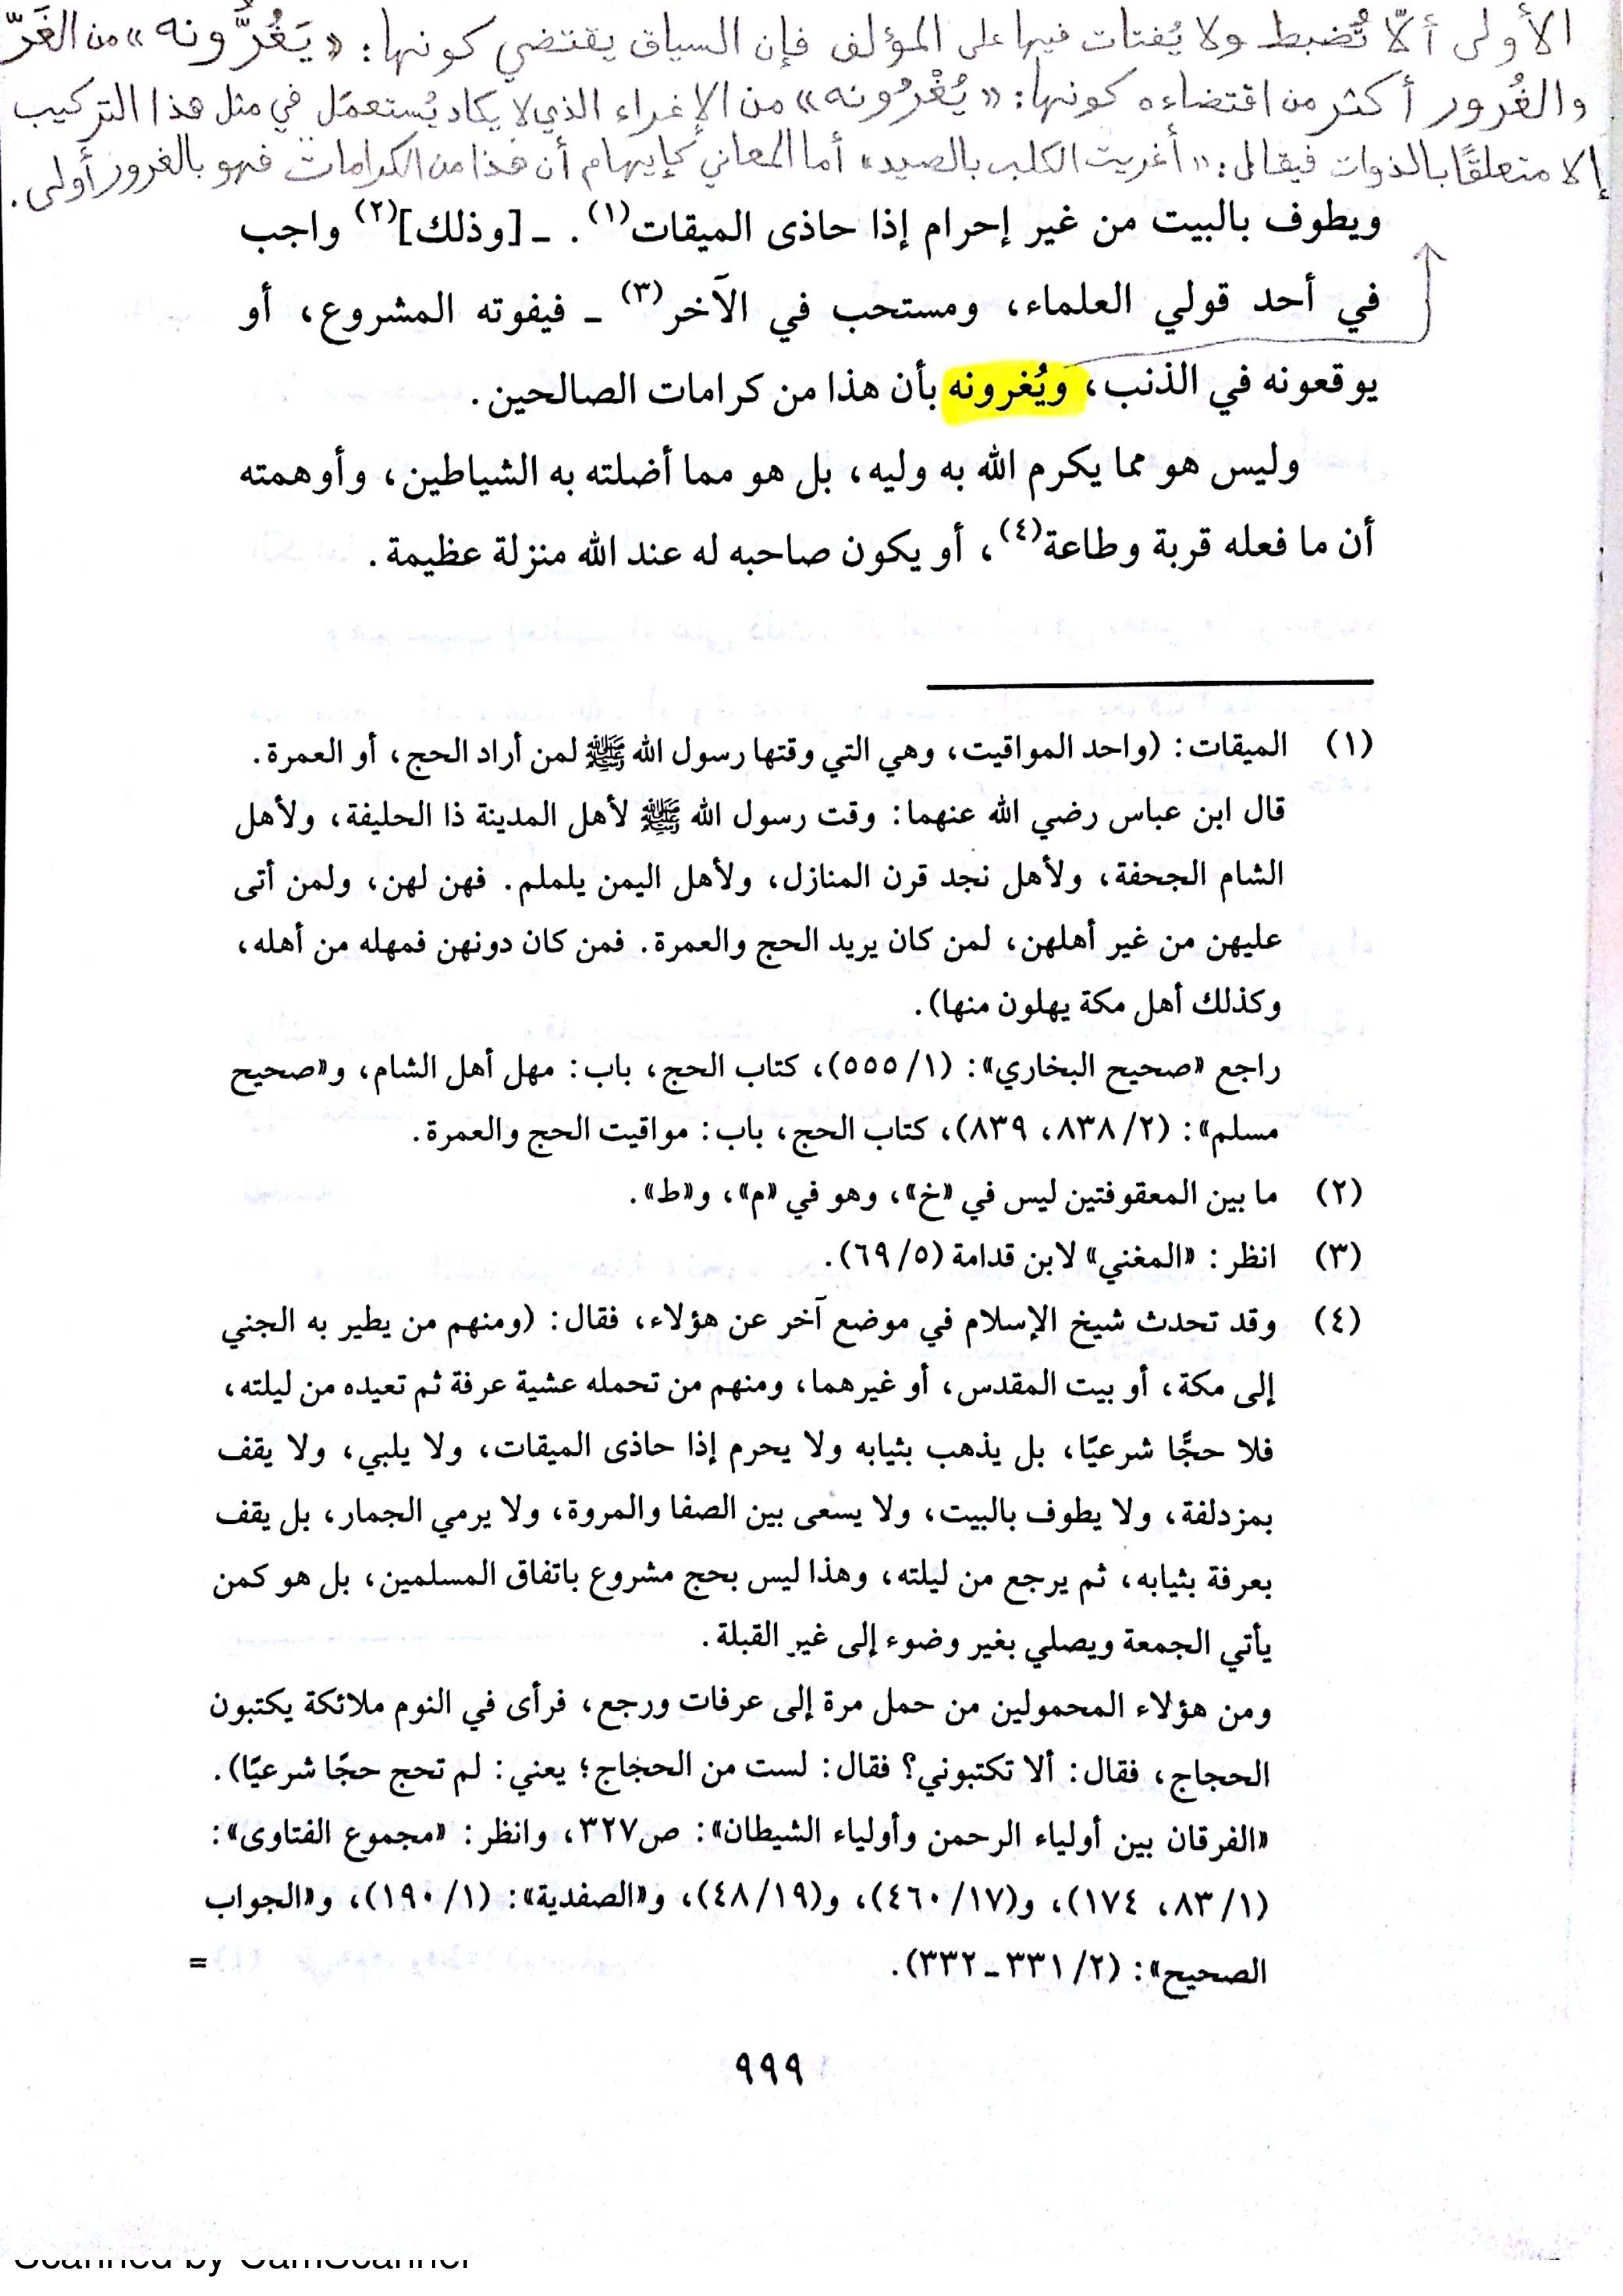 الأولى ألّا تُضبط ولا يُفتات فيها على المؤلف فإن السياق يقتضي كونها: «يَغُرُّونه» من الغَرّ
والغُرور أكثر من اقتضاءه كونها: «يُغْرُونه» من الإغراء الذي لا يكاد يُستعمَل في مثل هذا التركيب
إلا متعلقًا بالذوات فيقال: «أغريت الكلب بالصيد» أما المعاني كإيهام أن هذا من الكرامات فهو بالغرور أولى.
ويطوف بالبيت من غير إحرام إذا حاذى الميقات(١). ـ [وذلك](٢) واجب
في أحد قولي العلماء، ومستحب في الآخر(٣) ـ فيفوته المشروع، أو
يوقعونه في الذنب، ويُغرونه بأن هذا من كرامات الصالحين.
وليس هو مما يكرم الله به وليه، بل هو مما أضلته به الشياطين، وأوهمته
أن ما فعله قربة وطاعة(٤)، أو يكون صاحبه له عند الله منزلة عظيمة.
(١) الميقات: (واحد المواقيت، وهي التي وقتها رسول الله ﷺ لمن أراد الحج، أو العمرة.
قال ابن عباس رضي الله عنهما: وقت رسول الله ﷺ لأهل المدينة ذا الحليفة، ولأهل
الشام الجحفة، ولأهل نجد قرن المنازل، ولأهل اليمن يلملم. فهن لهن، ولمن أتى
عليهن من غير أهلهن، لمن كان يريد الحج والعمرة. فمن كان دونهن فمهله من أهله،
وكذلك أهل مكة يهلون منها).
راجع «صحيح البخاري»: (٥٥٥/١)، كتاب الحج، باب: مهل أهل الشام، و«صحيح
مسلم»: (٨٣٨/٢، ٨٣٩)، كتاب الحج، باب: مواقيت الحج والعمرة.
(٢) ما بين المعقوفتين ليس في «خ»، وهو في «م»، و«ط».
(٣) انظر: «المغني» لابن قدامة (٦٩/٥).
(٤) وقد تحدث شيخ الإسلام في موضع آخر عن هؤلاء، فقال: (ومنهم من يطير به الجني
إلى مكة، أو بيت المقدس، أو غيرهما، ومنهم من تحمله عشية عرفة ثم تعيده من ليلته،
فلا حجًّا شرعيًا، بل يذهب بثيابه ولا يحرم إذا حاذى الميقات، ولا يلبي، ولا يقف
بمزدلفة، ولا يطوف بالبيت، ولا يسعى بين الصفا والمروة، ولا يرمي الجمار، بل يقف
بعرفة بثيابه، ثم يرجع من ليلته، وهذا ليس بحج مشروع باتفاق المسلمين، بل هو كمن
يأتي الجمعة ويصلي بغير وضوء إلى غير القبلة.
ومن هؤلاء المحمولين من حمل مرة إلى عرفات ورجع، فرأى في النوم ملائكة يكتبون
الحجاج، فقال: ألا تكتبوني؟ فقال: لست من الحجاج؛ يعني: لم تحج حجًا شرعيًا).
«الفرقان بين أولياء الرحمن وأولياء الشيطان»: ص٣٢٧، وانظر: «مجموع الفتاوى»:
(٨٣/١، ١٧٤)، و(٤٦٠/١٧)، و(٤٨/١٩)، و«الصفدية»: (١٩٠/١)، و«الجواب
الصحيح»: (٣٣١/٢ـ٣٣٢). =
٩٩٩
Scanned by CamScanner